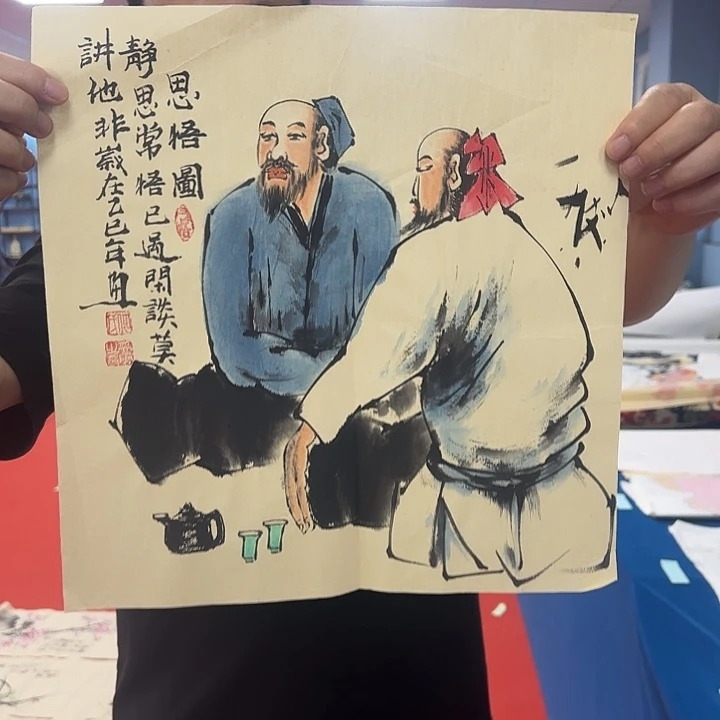 思悟圖
靜思常悟已過閑談莫
講他非歲在乙巳年